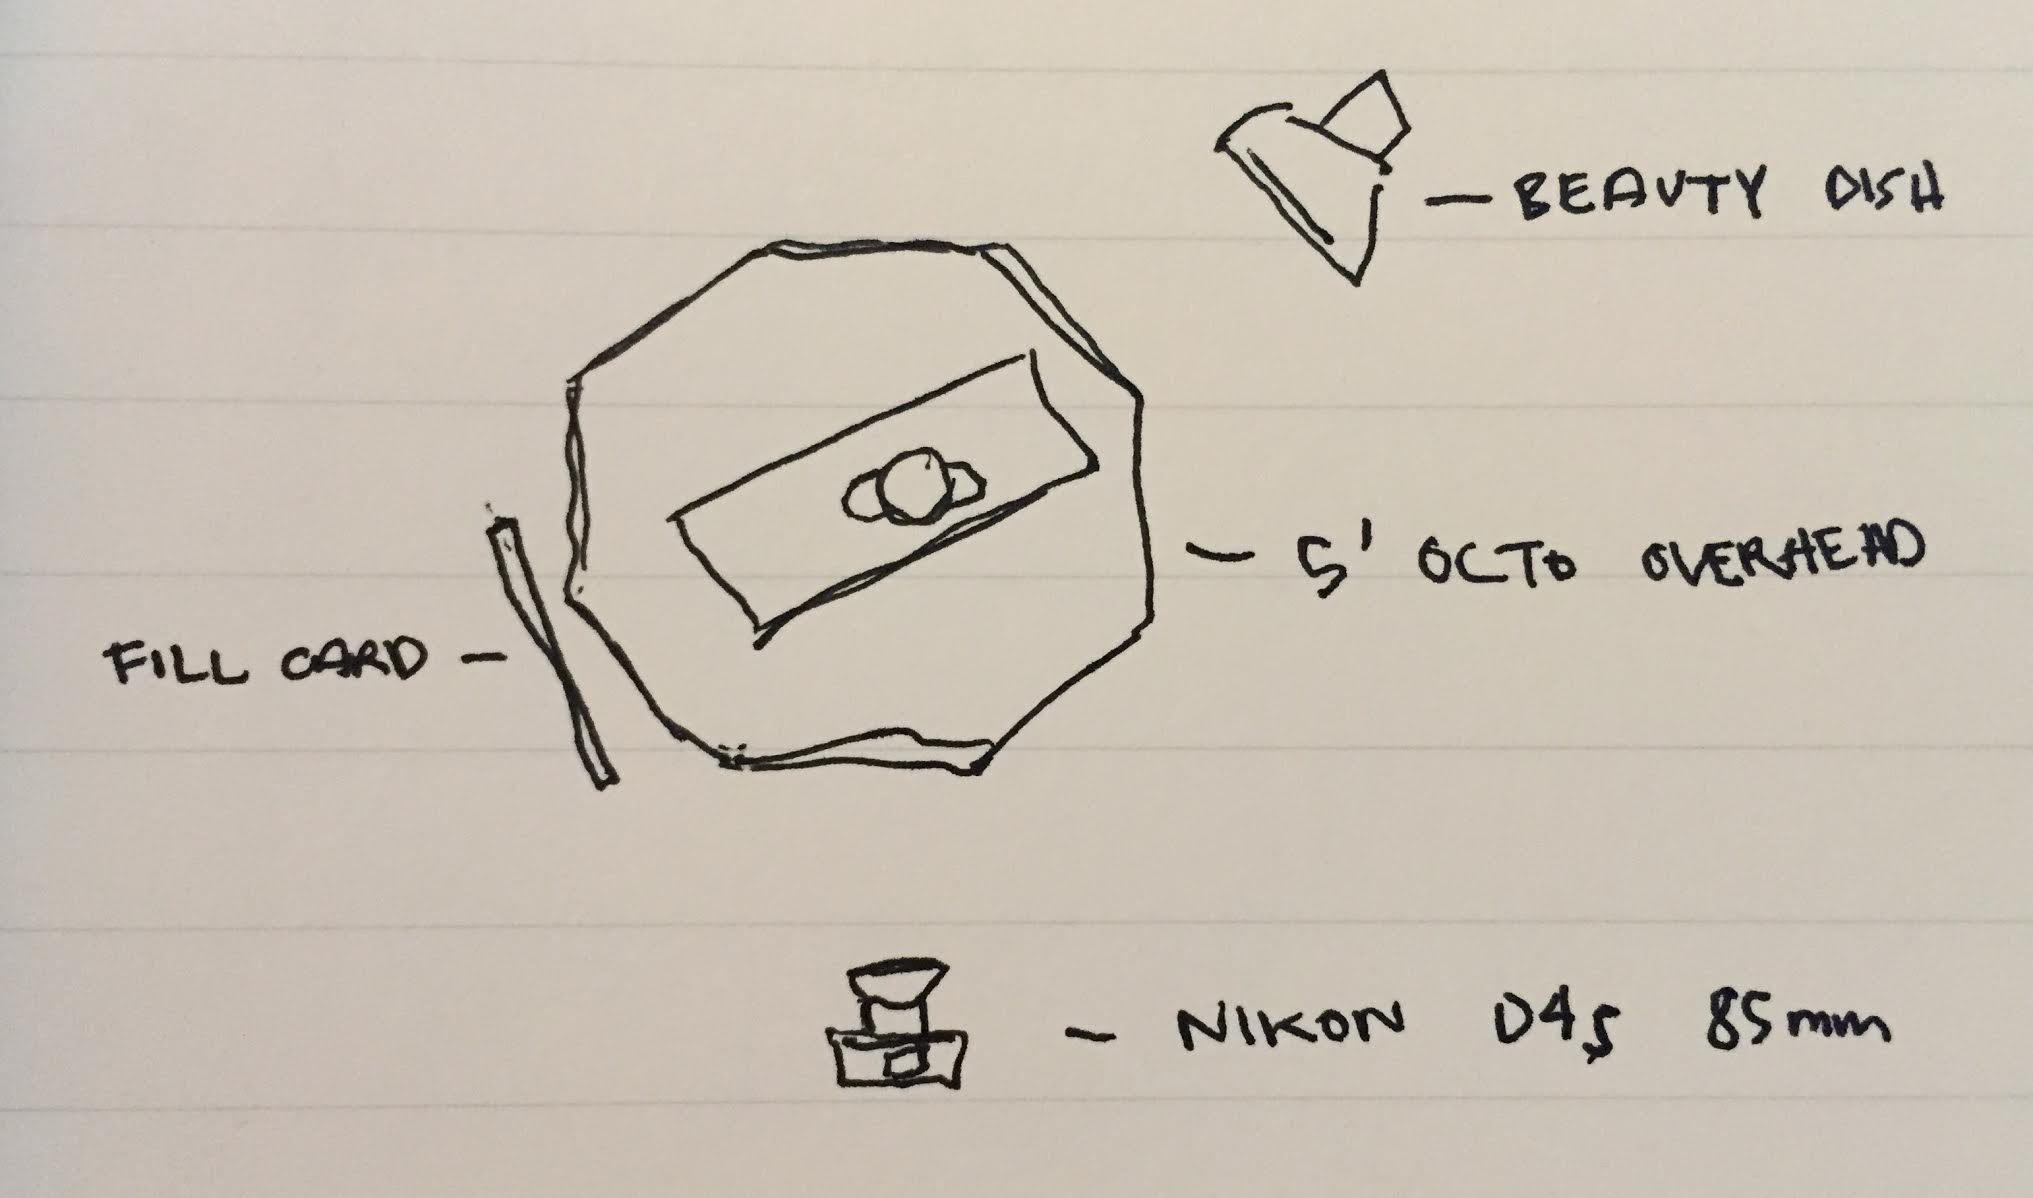 — BEAUTY DISH
— 5' OCTO OVERHEAD
FILL CARD —
— NIKON D4s 85mm